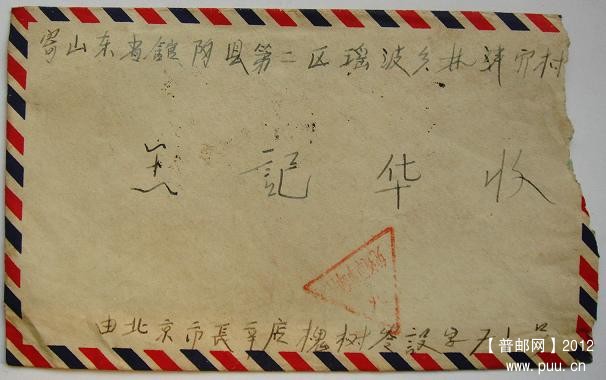 寄山东省馆陶县第二区瑶波乡林津寨村
记华收
由北京市長辛店槐树岺設字
【普邮网】2012
www.puu.cn